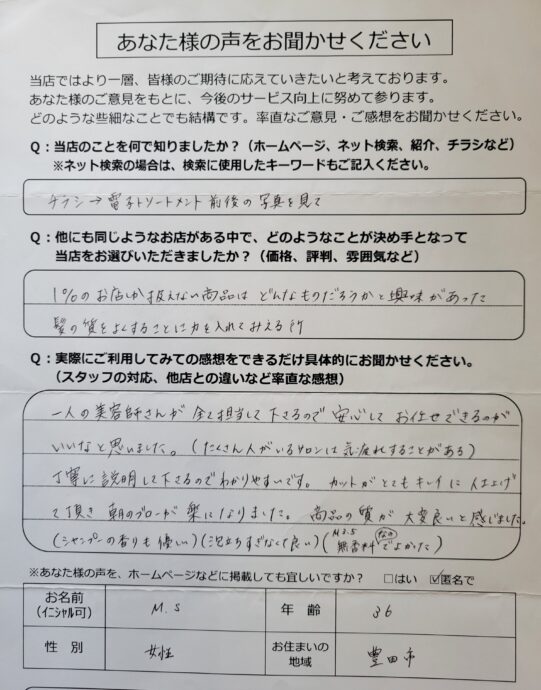 あなた様の声をお聞かせください
当店ではより一層、皆様のご期待に応えていきたいと考えております。
あなた様のご意見をもとに、今後のサービス向上に努めて参ります。
どのような些細なことでも結構です。率直なご意見・ご感想をお聞かせください。
Q：当店のことを何で知りましたか？（ホームページ、ネット検索、紹介、チラシなど）
※ネット検索の場合は、検索に使用したキーワードもご記入ください。
チラシ→電子トリートメント前後の写真を見て
Q：他にも同じようなお店がある中で、どのようなことが決め手となって
当店をお選びいただきましたか？（価格、評判、雰囲気など）
1%のお店しか扱えない商品は どんなものだろうかと興味があった
髪の質をよくすることに力を入れてみえる所
Q：実際にご利用してみての感想をできるだけ具体的にお聞かせください。
（スタッフの対応、他店との違いなど率直な感想）
一人の美容師さんが 全て担当して下さるので 安心して お任せできるのが
いいなと思いました。（たくさん人がいるサロンは気疲れすることがある）
丁寧に説明して下さるのでわかりやすいです。 カットがとてもキレイに仕上げ
て頂き 朝のブローが 楽になりました。 商品の質が 大変良いと感じました。
（シャンプーの香りも優しい）（泡立ちすぎなくて良い）（無香料なのでよかった）
※あなた様の声を、ホームページなどに掲載しても宜しいですか？ □はい ☑匿名で
お名前 M.S 年 齢 36
（イニシャル可）
性 別 女性 お住まいの 豊田市
地域